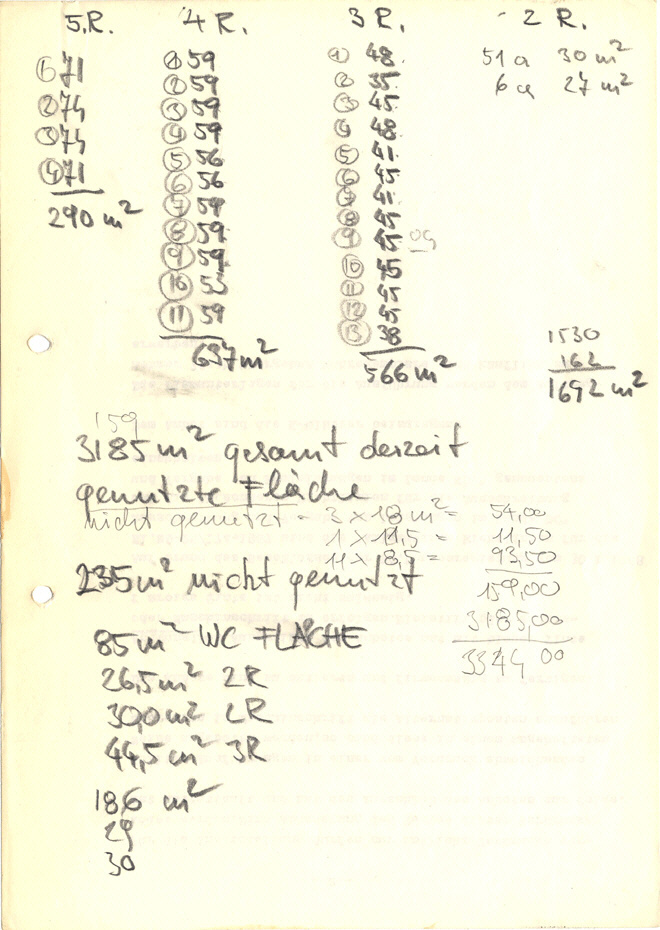 5.R.
① 71
② 74
③ 74
④ 71
290 m²
4 R.
① 59
② 59
③ 59
④ 59
⑤ 56
⑥ 56
⑦ 59
⑧ 59
⑨ 59
⑩ 53
⑪ 59
637 m²
3 R.
① 48
② 35
③ 45
④ 48
⑤ 41
⑥ 45
⑦ 41
⑧ 45
⑨ 45
⑩ 45
⑪ 45
⑫ 45
⑬ 38
566 m²
2 R.
51 a 30 m²
6 a 27 m²
1530
162
1692 m²
159
3185 m² gesamt derzeit
genutzte Fläche
nicht genutzt - 3 x 18 m² = 54,00
1 x 11,5 = 11,50
11 x 8,5 = 93,50
159,00
3185,00
3344 00
235 m² nicht genutzt
85 m² - WC FLÄCHE
26,5 m² 2R
30,0 m² 2R
44,5 m² 3R
186 m²
29
30